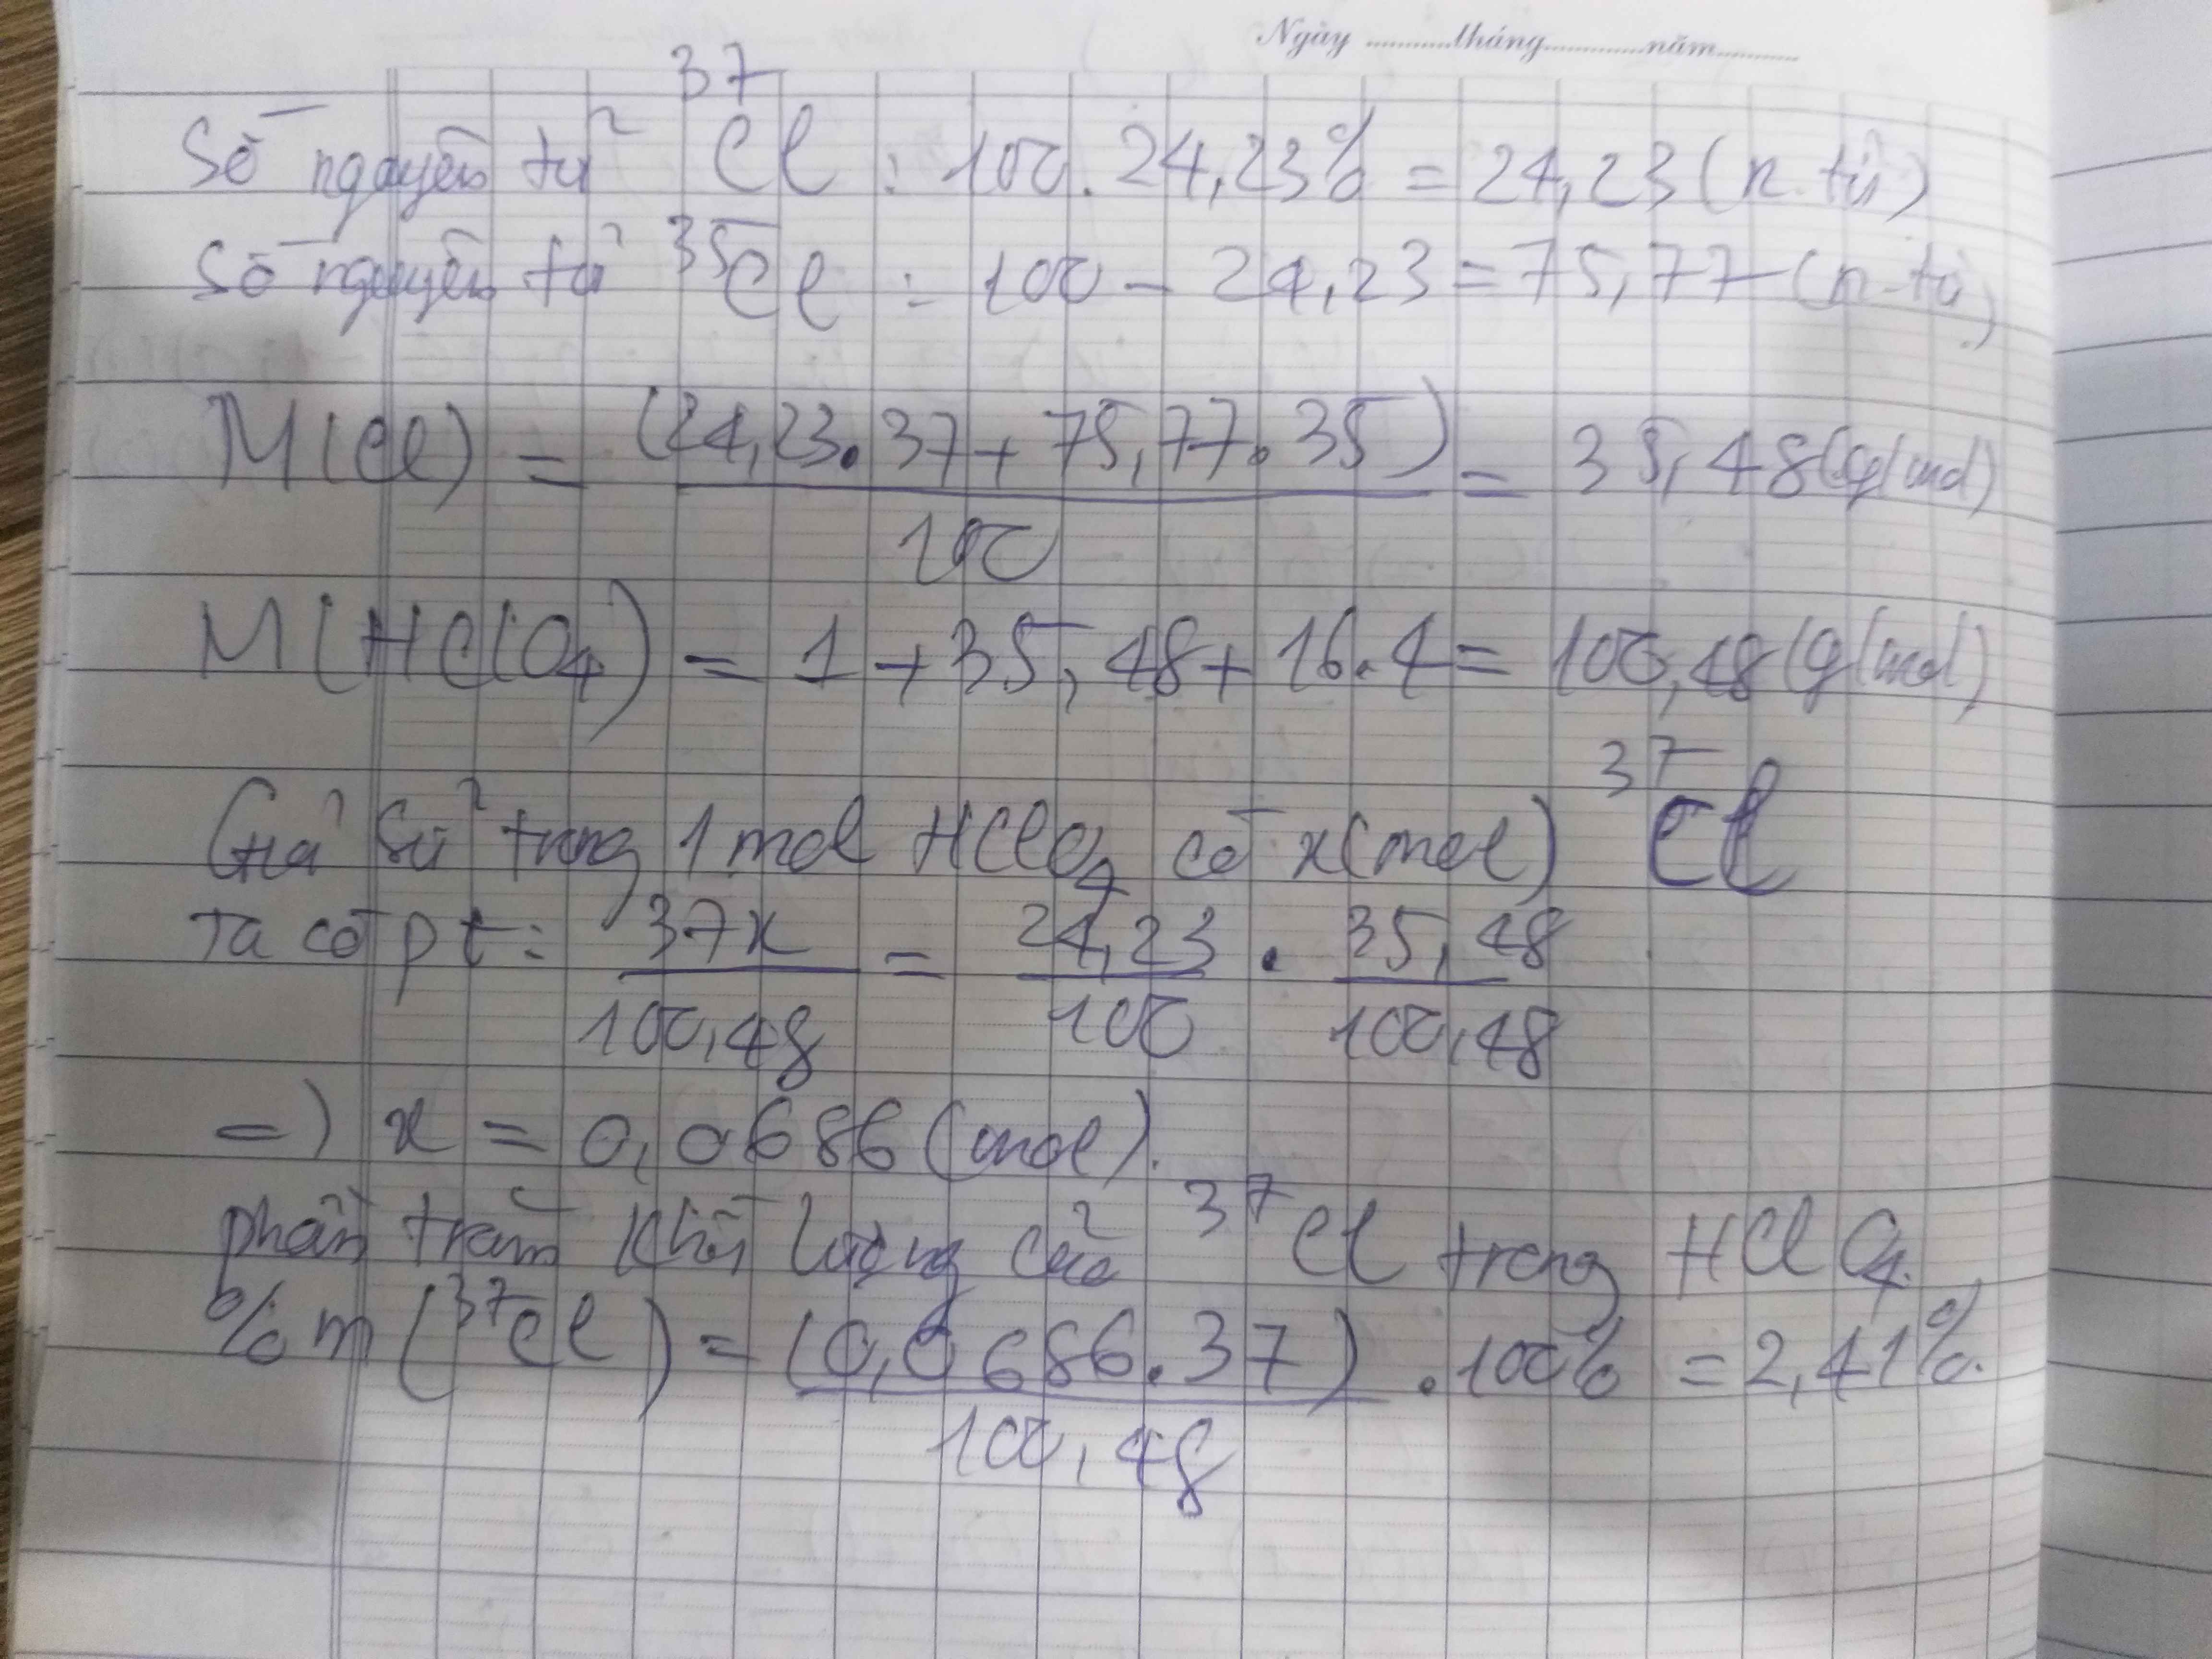 Ngày ............tháng.............năm...........
Số nguyên tử ³⁷Cl : 100.24,23% = 24,23 (n.tử)
Số nguyên tử ³⁵Cl : 100 - 24,23 = 75,77 (n.tử)
M(Cl) = (24,23.37 + 75,77.35)/100 = 35,48 (g/mol)
M(HClO₄) = 1 + 35,48 + 16.4 = 100,48 (g/mol)
Giả sử trong 1 mol HClO₄ có x(mol) ³⁷Cl
Ta có pt : 37x/100,48 = 24,23/100 . 35,48/100,48
=) x = 0,0686 (mol).
phần trăm khối lượng của ³⁷Cl trong HClO₄.
%m (³⁷Cl) = (0,0686.37)/100,48 .100% = 2,41%.